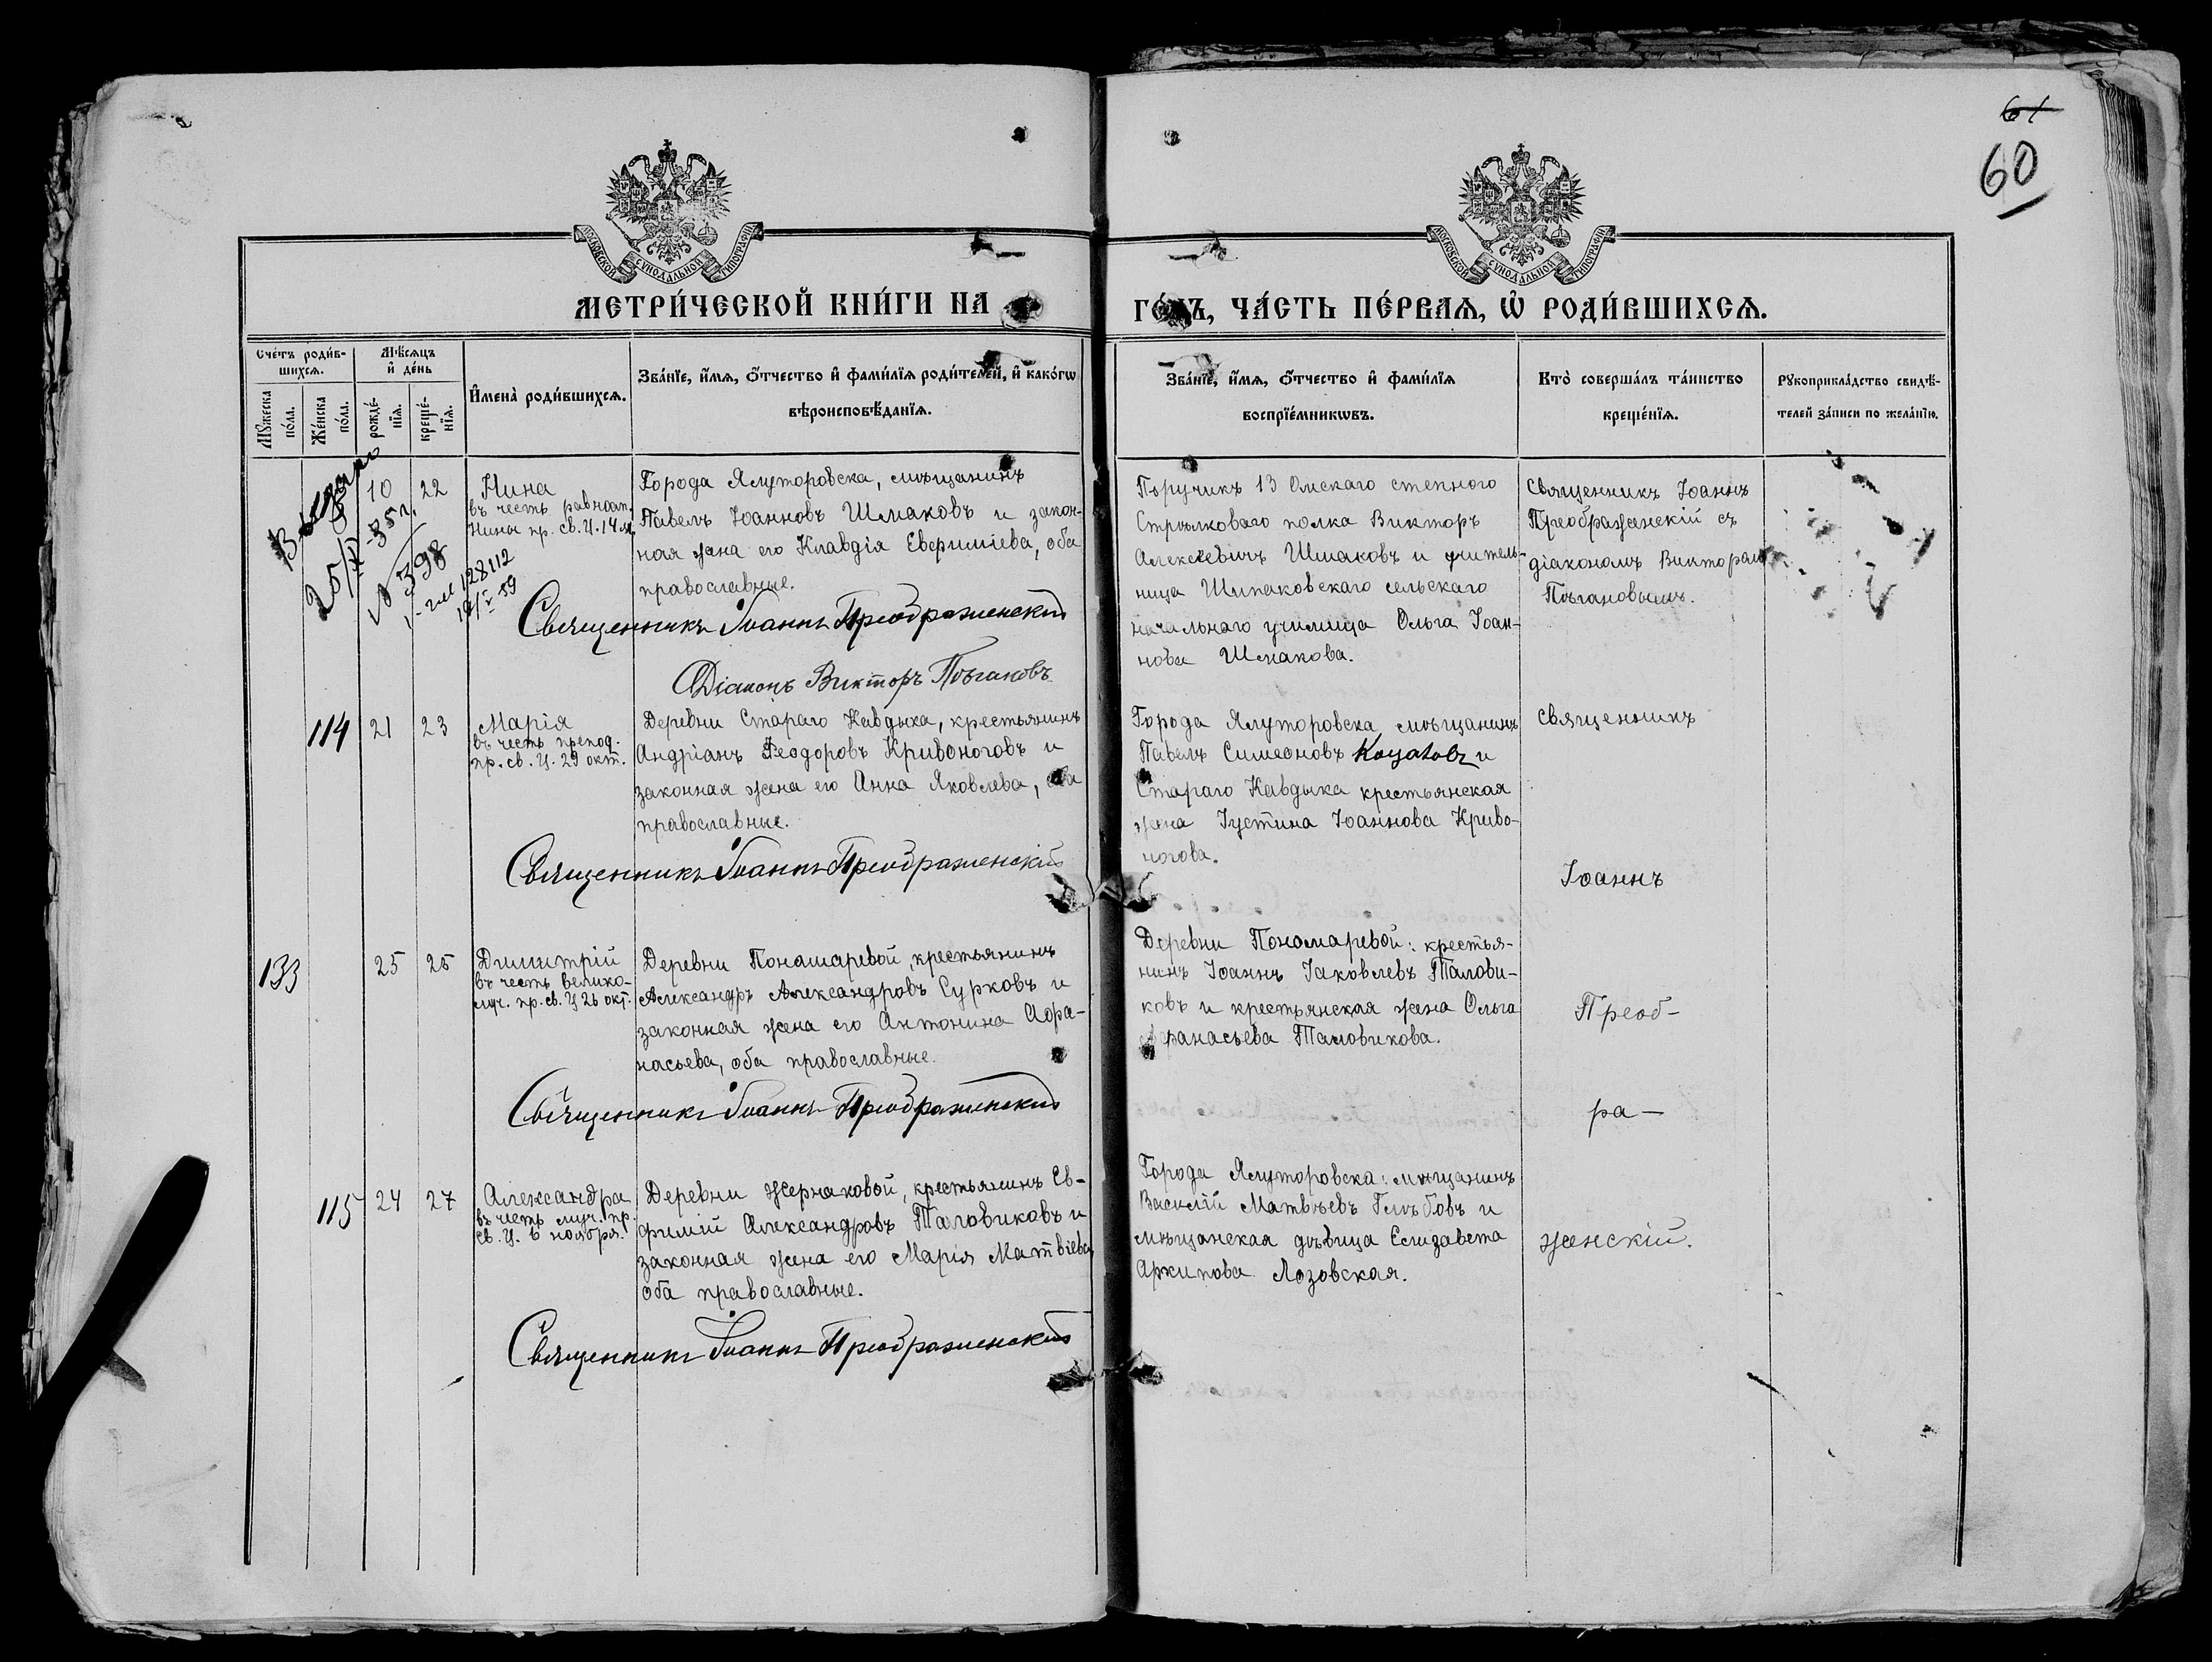 61
60
МОСКОВСКОЙ СѴНОДАЛЬНОЙ ТИПОГРАФІИ
МОСКОВСКОЙ СѴНОДАЛЬНОЙ ТИПОГРАФІИ
МЕТРИ́ЧЕСКОЙ КНИ́ГИ НА
ГО́ДЪ, ЧА́СТЬ ПЕ́РВАѦ, Ѡ҆ РОДИ́ВШИХСѦ.
Сче́тъ роди́в-
шихсѧ.
Мѣ́сѧцъ
и҆ де́нь
Мꙋ́жеска
по́ла.
Же́нска
по́ла.
рожде́-
нїѧ.
креще́-
нїѧ.
И҆мена̀ роди́вшихсѧ.
Зва́нїе, и҆́мѧ, ѻ҆́тчество и҆ фами́лїѧ роди́телей, и҆ како́гѡ
вѣроисповѣ́данїѧ.
Зва́нїе, и҆́мѧ, ѻ҆́тчество и҆ фами́лїѧ
воспрїе́мникѡвъ.
Кто̀ соверша́лъ та́инство
креще́нїѧ.
Рꙋкоприкла́дство свидѣ́-
телей за́писи по жела́нїю.
10 22
Нина
въ честь равноап.
Нины пр. св. Ц. 14 я.
25/IV-35 г.
№ 398
128112
59
Города Ялуторовска, мѣщанинъ
Павелъ Іоанновъ Шмаковъ и закон-
ная жена его Клавдія Евфиміева, оба
православные.
Священникъ Іоаннъ Преображенскій
Діаконъ Викторъ Пѣгановъ
Поручикъ 13 Омскаго степного
Стрѣлковаго полка Викторъ
Алексѣевичъ Шмаковъ и учитель-
ница Шипаковскаго сельскаго
начальнаго училища Ольга Іоан-
нова Шмакова.
Священникъ Іоаннъ
Преображенскій съ
діакономъ Викторомъ
Пѣгановымъ.
114 21 23
Марія
въ честь препод.
пр. св. Ц. 29 окт.
Деревни Стараго Кавдыка, крестьянинъ
Андріанъ Ѳеодоровъ Кривоноговъ и
законная жена его Анна Яковлева, оба
православные.
Священникъ Іоаннъ Преображенскій
Города Ялуторовска мѣщанинъ
Павелъ Симеоновъ и
Стараго Кавдыка крестьянская
жена Іустина Іоаннова Криво-
ногова.
Священникъ
Іоаннъ
133 25 25
Димитрій
въ честь велико-
муч. пр. св. Ц 26 окт.
Деревни Пономаревой, крестьянинъ
Александръ Александровъ Сурковъ и
законная жена его Антонина Афа-
насьева, оба православные.
Священникъ Іоаннъ Преображенскій
Деревни Пономаревой: крестья-
нинъ Іоаннъ Іаковлевъ Талови-
ковъ и крестьянская жена Ольга
Афанасьева Таловикова.
Преоб-
ра-
115 24 27
Александра
въ честь муч. пр.
св. Ц. 6 ноября.
Деревни Жернаковой, крестьянинъ Ев-
фимій Александровъ Таловиковъ и
законная жена его Марія Матвіева
оба православные.
Священникъ Іоаннъ Преображенскій
Города Ялуторовска: мѣщанинъ
Василій Матвѣевъ Глѣбовъ и
мѣщанская дѣвица Елизавета
Архипова Лозовская.
женскій.